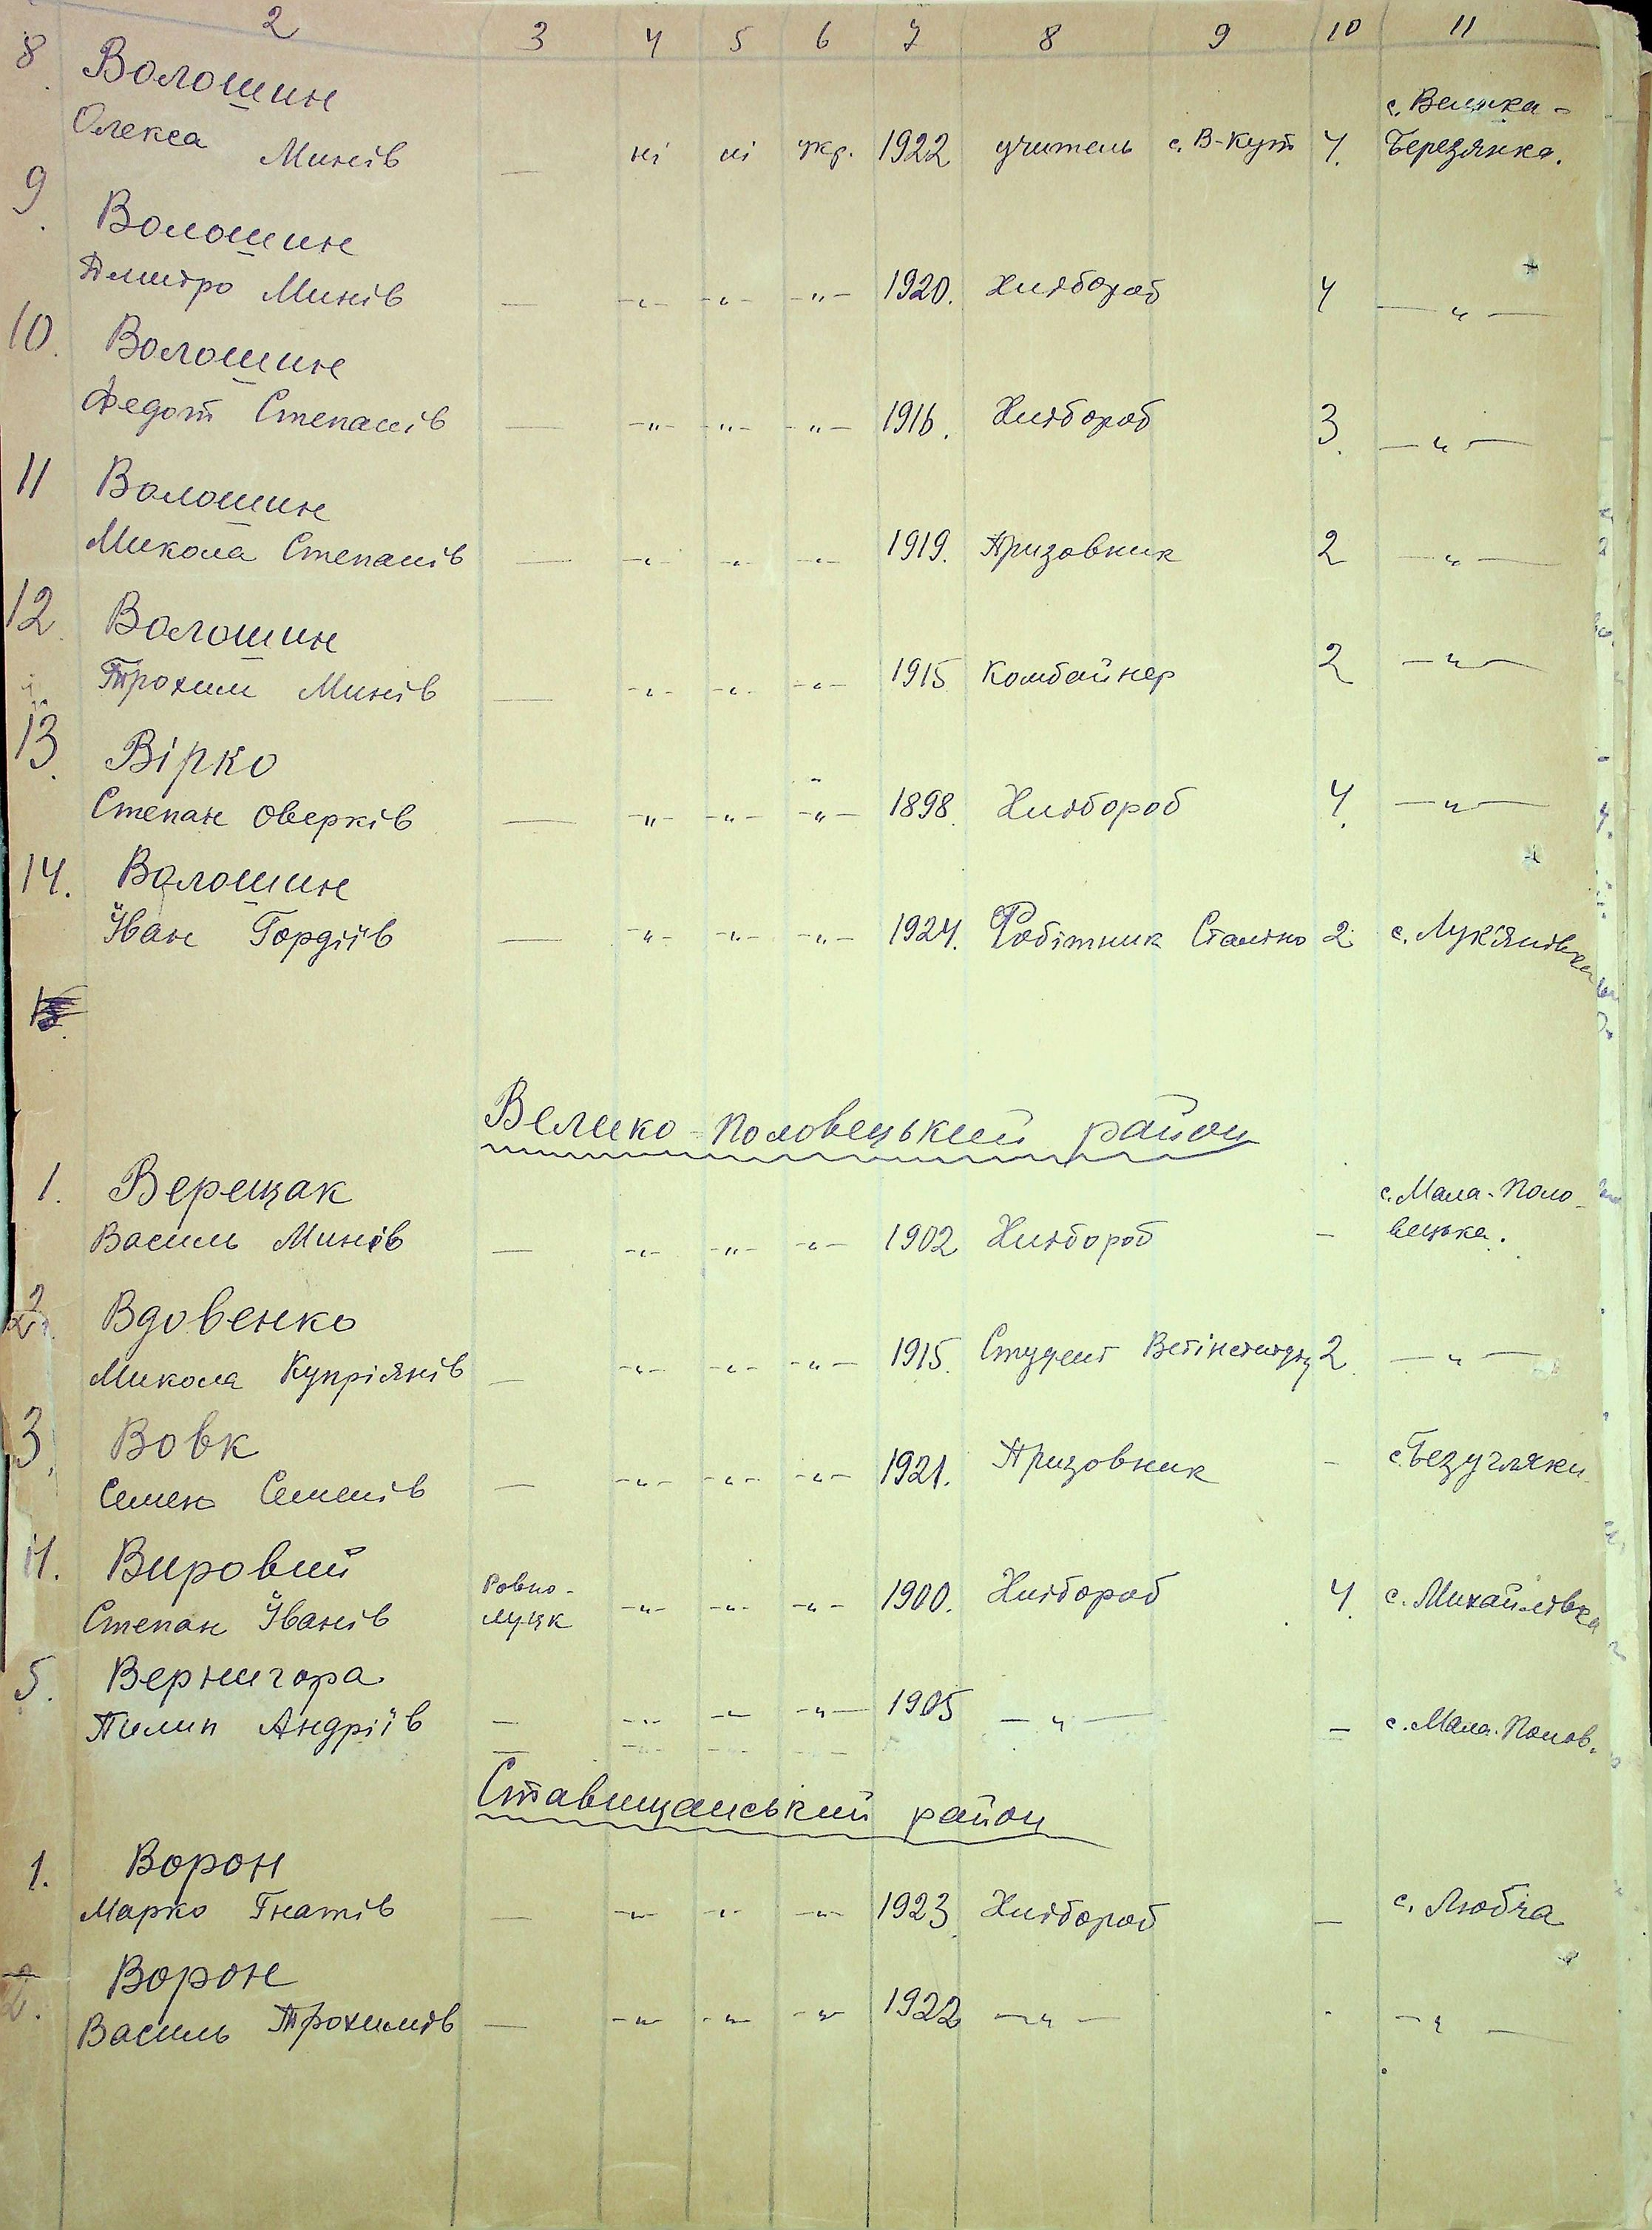 2 3 4 5 6 7 8 9 10 11
8. Волошин
Олекса Минів — ні ні укр. 1922 учитель с. В-Кут 4. с. Велика-Березянка.
9. Волошин
Дмитро Минів — -"- -"- -"- 1920. Хлібороб 4 — " —
10. Волошин
Федот Степанів — -"- -"- -"- 1916. Хлібороб 3. — " —
11 Волошин
Микола Степанів — -"- -"- -"- 1919. Призовник 2 — " —
12. Волошин
Трохим Минів — -"- -"- -"- 1915 Комбайнер 2 — " —
13. Вірко
Степан Оверків — -"- -"- -"- 1898. Хлібороб 4. — " —
14. Волошин
Іван Гордіїв — -"- -"- -"- 1924. Робітник Сталіно 2 с. Лук'янівка
15.
Велико-Половецький район
1. Верещак
Василь Минів — -"- -"- -"- 1902 Хлібороб - с. Мала-Половецька.
2. Вдовенко
Микола Купріянів — -"- -"- -"- 1915. Студент Ветінституту 2. — " —
3. Вовк
Семен Семенів — -"- -"- -"- 1921. Призовник - с. Безугляки
4. Вировий
Степан Іванів Ровно-Луцк -"- -"- -"- 1900. Хлібороб 4. с. Михайлівка
5. Вернигора
Пилип Андріїв — -"- -"- -"- 1905 — " — - с. Мала-Полов.
Ставищанський район
1. Ворон
Марко Гнатів — -"- -"- -"- 1923. Хлібороб - с. Любча
2. Ворон
Василь Трохимів — -"- -"- -"- 1922 — " — - — " —